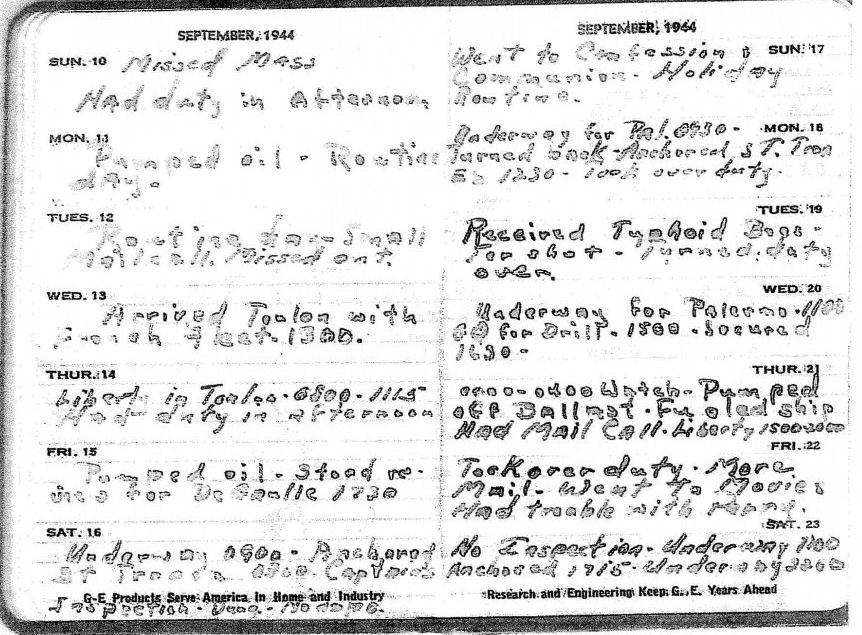 SEPTEMBER, 1944
SUN. 10 Missed Mass
Had duty in Afternoon
MON. 11
Pumped oil - Routine
day.
TUES. 12
Routine day - Small
Mail call. Missed out.
WED. 13
Arrived Toulon with
French fleet. 1300.
THUR. 14
Liberty in Toulon. 0800-1115
Had duty in afternoon
FRI. 15
Pumped oil - Stood re-
view for DeGaulle 1730
SAT. 16
Underway 0900 - Anchored
St Captains
G-E Products Serve America In Home and Industry
Inspection -
SEPTEMBER, 1944
Went to Confession & SUN. 17
Communion - Holiday
Routine.
Underway for Pal. 0930 - MON. 18
Turned back - Anchored, ST. Trop
Ez 1230 - took over duty.
TUES. 19
Received Typhoid Boos-
ter shot - Turned duty
over.
WED. 20
Underway for Palermo - 1100
GQ for Drill - 1500 - Secured
1630 -
THUR. 21
0000-0400 Watch - Pumped
off Ballast - Fueled ship
Had Mail Call - Liberty 1500-2000
FRI. 22
Took over duty - More
Mail - Went To Movies
Had trouble with
SAT. 23
No Inspection - Underway 1100
Anchored 1715 - Underway 2200
Research and Engineering Keep G. E. Years Ahead